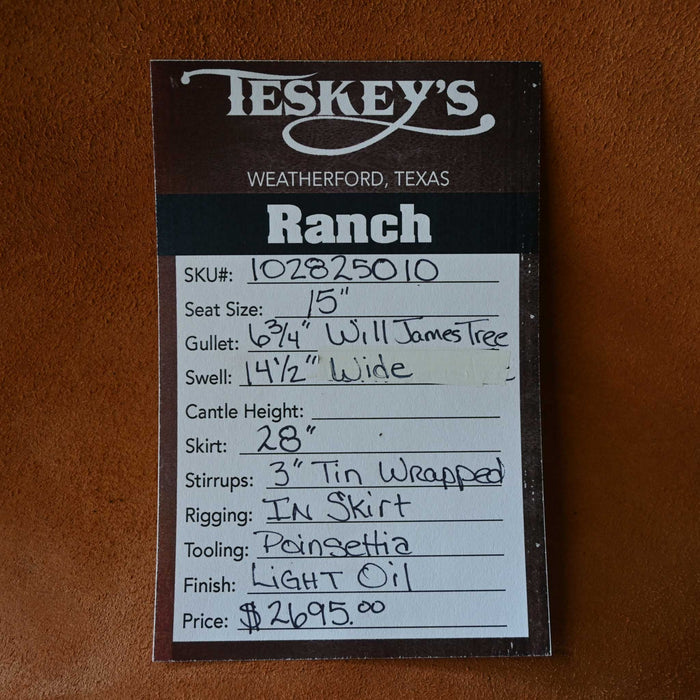 TESKEY'S
WEATHERFORD, TEXAS
Ranch
SKU#: 102825010
Seat Size: 15"
Gullet: 6 3/4" Will James Tree
Swell: 14 1/2" Wide
Cantle Height:
Skirt: 28"
Stirrups: 3" Tin Wrapped
Rigging: IN Skirt
Tooling: Poinsettia
Finish: LIGHT Oil
Price: $2695.00